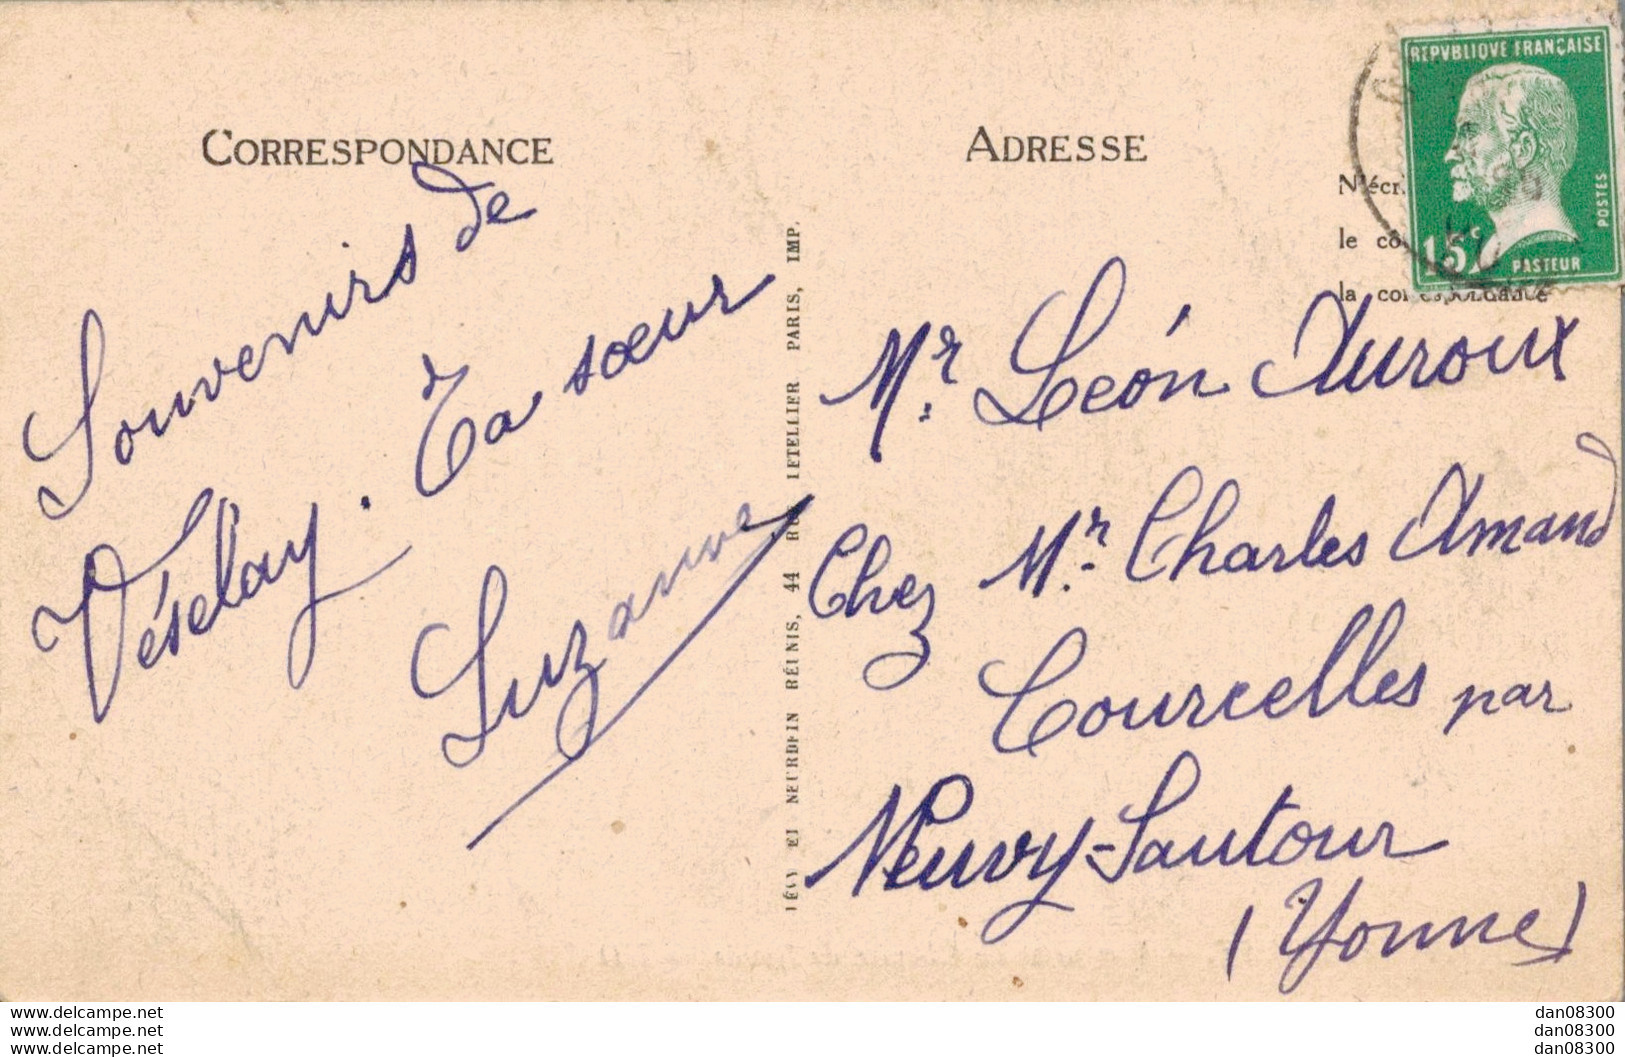 CORRESPONDANCE
Souvenirs de
Véselay. Ta sœur
Suzanne
LÉVY ET NEURDEIN RÉUNIS, 44 RUE LETELLIER PARIS, IMP.
ADRESSE
N'écr
le cô
la correspondance
REPVBLIQVE FRANÇAISE
POSTES
15c
PASTEUR
Mr. Léon Auroux
Chez Mr. Charles Amand
Courcelles par
Neuvy-Sautour
(Yonne)
www.delcampe.net
www.delcampe.net
www.delcampe.net
dan08300
dan08300
dan08300